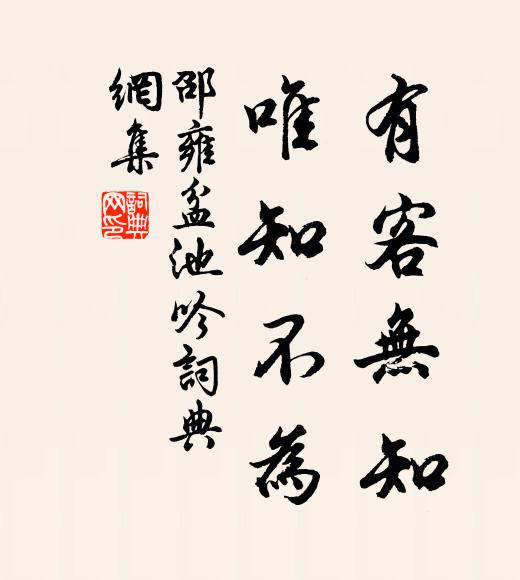 有客無知
唯知不為
邵雍盆池吟詞典
網集
詞典
网印